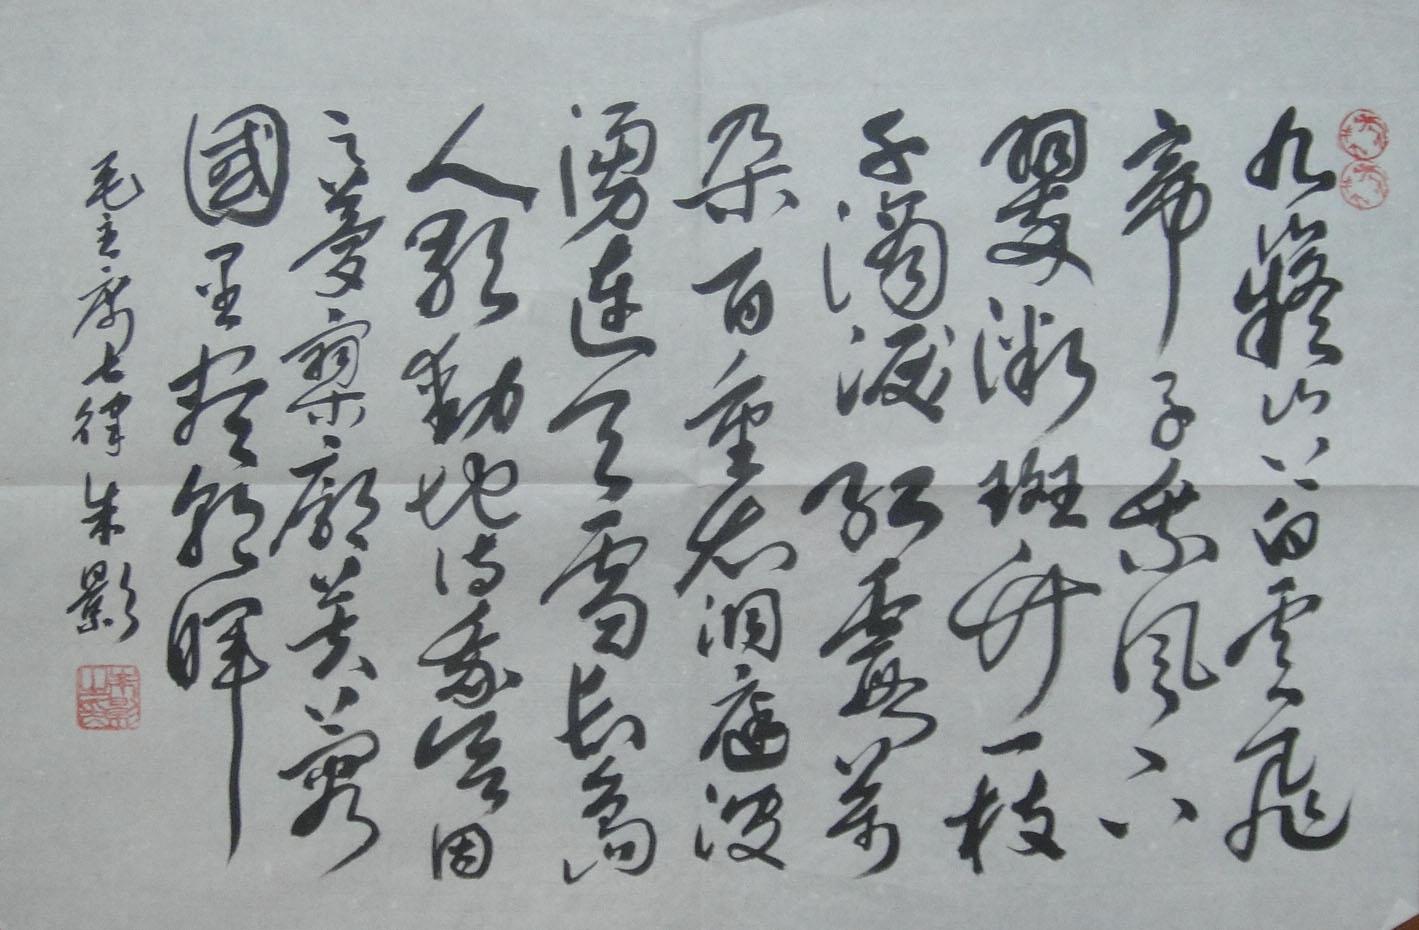 九嶷山上白雲飛
帝子乘風下
翠微斑竹一枝
千滴淚紅霞萬
朵百重衣洞庭波
湧連天雪長島
人歌動地詩我欲因
之夢寥廓芙蓉
國里盡朝暉
毛主席七律朱影
朱影之印